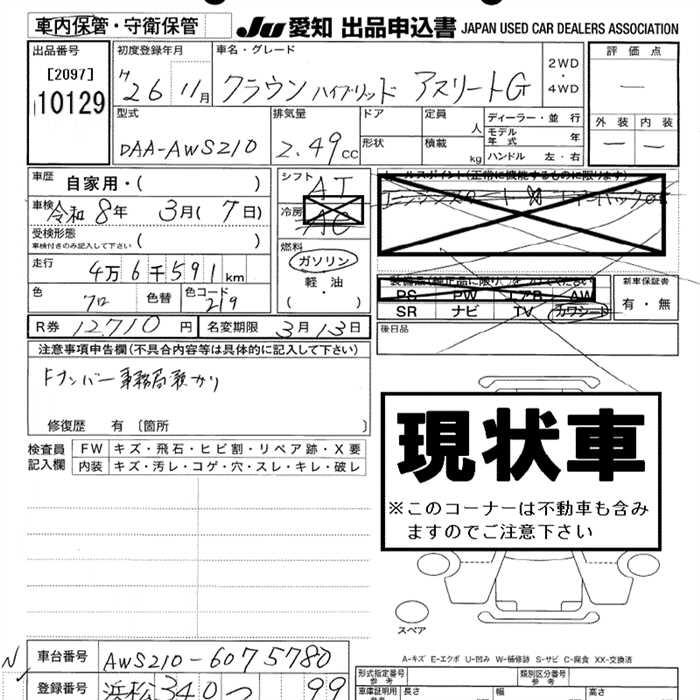 車内保管・守衛保管
JU 愛知 出品申込書 JAPAN USED CAR DEALERS ASSOCIATION
出品番号
[2097]
10129
初度登録年月
26年11月
車名・グレード
クラウン ハイブリッド アスリートG
2WD
・
4WD
評価点
—
外装 内装
— —
型式
DAA-AWS210
排気量
2.49cc
ドア
形状
定員
人
積載
kg
ディーラー・並行
モデル年式 年
ハンドル 左・右
車歴
自家用・( )
車検 令和8年 3月(7日)
受検形態
車検付きのみ記入して下さい ( )
走行
4万6千591km
色
クロ
色替
色コード
219
R券 12710円
名変期限 3月13日
シフト
AT
冷房
AC
燃料
ガソリン
軽・油
( ・ )
セールスポイント(正常に機能するものに限ります)
PS PW エアB AW
SR ナビ TV カワシート
新車保証書
有・無
後日品
注意事項申告欄(不具合内容等は具体的に記入して下さい)
Fナンバー事務局預かり
修復歴 有 〔箇所 〕
検査員
記入欄
FW キズ・飛石・ヒビ割・リペア跡・X要
内装 キズ・汚レ・コゲ・穴・スレ・キレ・破レ
現状車
※このコーナーは不動車も含み
ますのでご注意下さい
スペア
A-キズ E-エクボ U-凹み W-補修跡 S-サビ C-腐食 XX-交換済
車台番号 AWS210-6075780
登録番号 浜松 340 つ 99
型式指定番号
参考
類別区分番号
参考
車庫証明用
長さ
幅
高さ